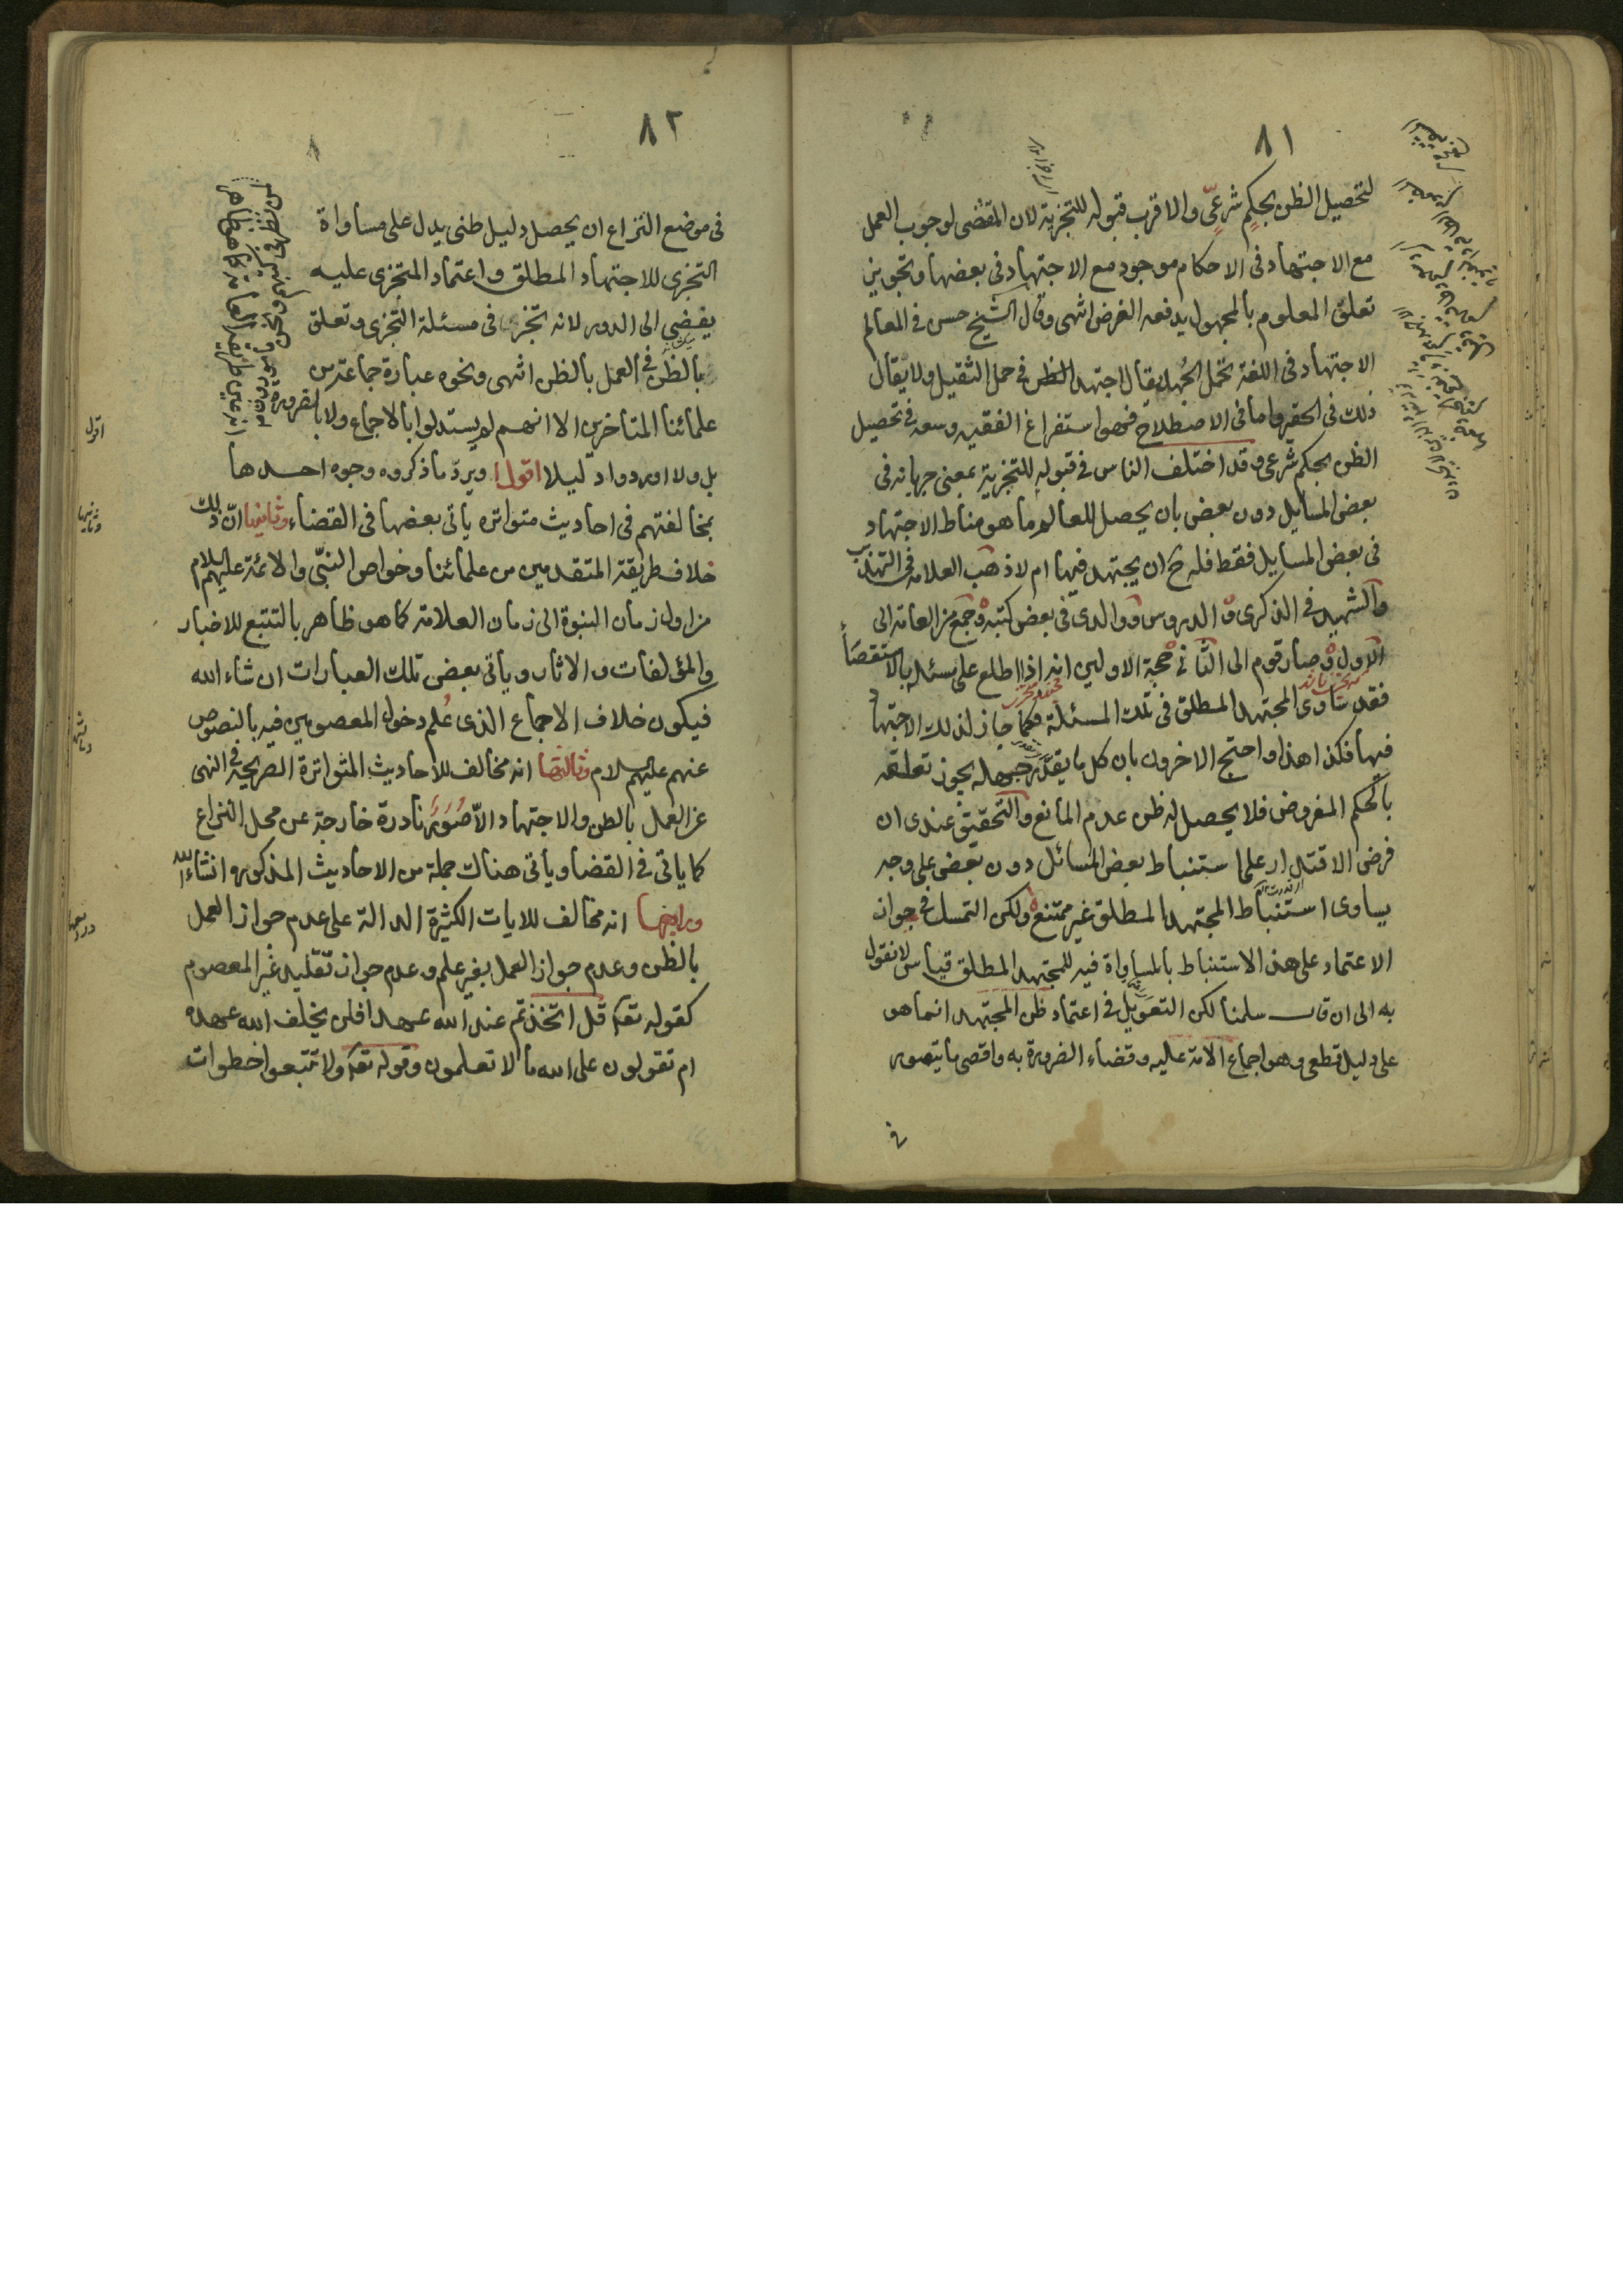 ٨١
لتحصيل الظن بحكم شرعىّ والاقرب قبوله للتجزية لان المقتضى لوجوب العمل
مع الاجتهاد فى الاحكام موجود مع الاجتهاد فى بعضها وتجويز
تعلق المعلوم بالمجهول يدفعه الفرض انتهى وقال الشيخ حسن فى المعالم
الاجتهاد فى اللغة تحمّل الجُهد يقال اجتهد فى حمل الثقيل ولا يقال
ذلك فى الحقير واما فى الاصطلاح فهو استفراغ الفقيه وسعه فى تحصيل
الظن بحكم شرعى وقد اختلف الناس فى قبوله للتجزية بمعنى جريانه فى
بعض المسايل دون بعض بان يحصل للعالم ما هو مناط الاجتهاد
فى بعض المسايل فقط فله ح ان يجتهد فيها ام لا ذهب العلامه فى التهذيب
والشهيد فى الذكرى و الدروس ووالدى فى بعض كتبه وجمع من العامه الى
الاول وصار قوم الى الثانى حجة الاولين انه اذا اطلع على مسئله بالاستقصاء
فقد ساوى المجتهد المطلق فى تلك المسئلة فكما جاز لذلك الاجتهاد
فيها فكذا هذا واحتج الاخرون بان كل ما يقدّر جهله يجوز تعلقه
بالحكم المفروض فلا يحصل له ظن عدم المانع والتحقيق عندى ان
فرض الاقتدار على استنباط بعض المسائل دون بعض على وجه
يساوى استنباط المجتهد المطلق غير ممتنع ولكن التمسك فى جواز
الاعتماد على هذ الاستنباط بالمساواة فيه للمجتهد المطلق قياس لا نقول
به الى ان قال سلمنا لكن التعويل فى اعتماد ظن المجتهد انما هو
على دليل قطعى وهو اجماع الامة عليه وقضاء الضرورة به واقصى ما يتصور
فى
٨٢
فى موضع النزاع ان يحصل دليل ظنى يدل على مساواة
التجزى للاجتهاد المطلق واعتماد المتجزى عليه
يفضى الى الدور لانه تجزى فى مسئلة التجزى وتعلق
بالظن فى العمل بالظن انتهى ونحوه عبارة جماعة من
علمائنا المتأخرين الا انهم لم يستدلوا بالاجماع ولا بالضرورة
بل ولا اوردوا دليلا اقول ويردّ ما ذكروه وجوه احدها
بمخالفتهم فى احاديث متواتره يأتى بعضها فى القضاء وثانيها انّ ذلك
خلاف طريقة المتقدمين من علمائنا وخواص النبّى والائمة عليهم السلام
من اول زمان النبوة الى زمان العلامة كما هو ظاهر بالتتبع للاخبار
والمؤلفات والاثار ويأتى بعض تلك العبارات ان شاء الله
فيكون خلاف الاجماع الذى عُلم دخول المعصومين فيه بالنصوص
عنهم عليهم السلام وثالثها انه مخالف للاحاديث المتواترة الصريحة فى النهى
عن العمل بالظن والاجتهاد الاّ صُورَاً نادرة خارجة عن محل النزاع
كما ياتى فى القضا ويأتى هناك جملة من الاحاديث المذكوره انشاء الله
ورابعها انه مخالف للايات الكثيرة الدالة على عدم جواز العمل
بالظن وعدم جواز العمل بغير علم وعدم جواز تقليد غير المعصوم
كقوله تعا قل اتخذتم عند الله عهدا فلن يخلف الله عهده
ام تقولون على الله ما لا تعلمون وقوله تعا ولا تتبعوا خطوات
اقول
وثانيها